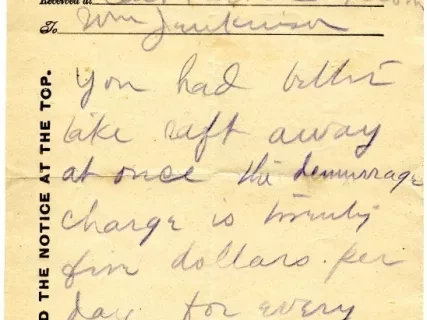 Received at
To Wm Jenkinson
You had better
take raft away
at once the demurrage
charge is twenty
five dollars per
day for every
D THE NOTICE AT THE TOP.